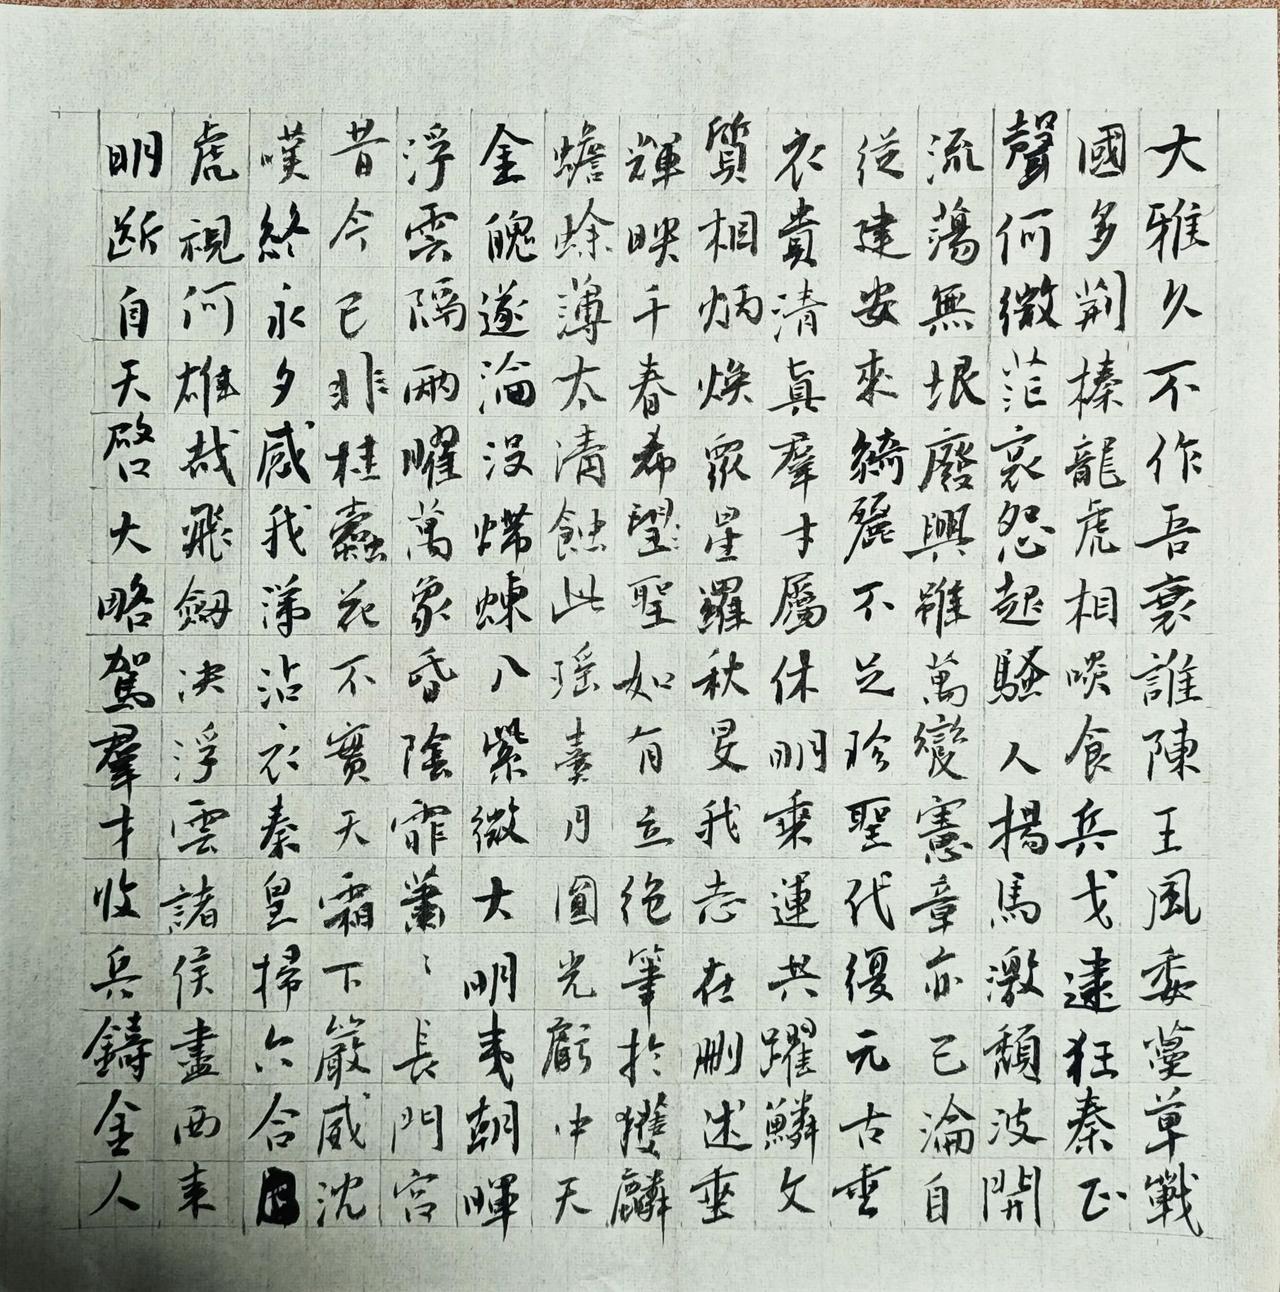 大雅久不作吾衰誰陳王風委蔓草戰
國多荆榛龍虎相啖食兵戈逮狂秦正
聲何微茫哀怨起騷人揚馬激頹波開
流蕩無垠廢興雖萬變憲章亦已淪自
從建安來綺麗不足珍聖代復元古垂
衣貴清真羣才屬休明乘運共躍鱗文
質相炳煥眾星羅秋旻我志在刪述垂
輝映千春希望聖如有立絶筆於獲麟
蟾蜍薄太清蝕此瑶臺月圓光虧中天
金魄遂淪没螮蝀入紫微大明夷朝暉
浮雲隔兩曜萬象昏陰霏蕭〻長門宮
昔今已非桂蠹花不實天霜下嚴威沈
嘆終永夕感我涕沾衣秦皇掃六合
虎視何雄哉飛劍决浮雲諸侯盡西来
明斷自天啓大略駕羣才收兵鑄金人